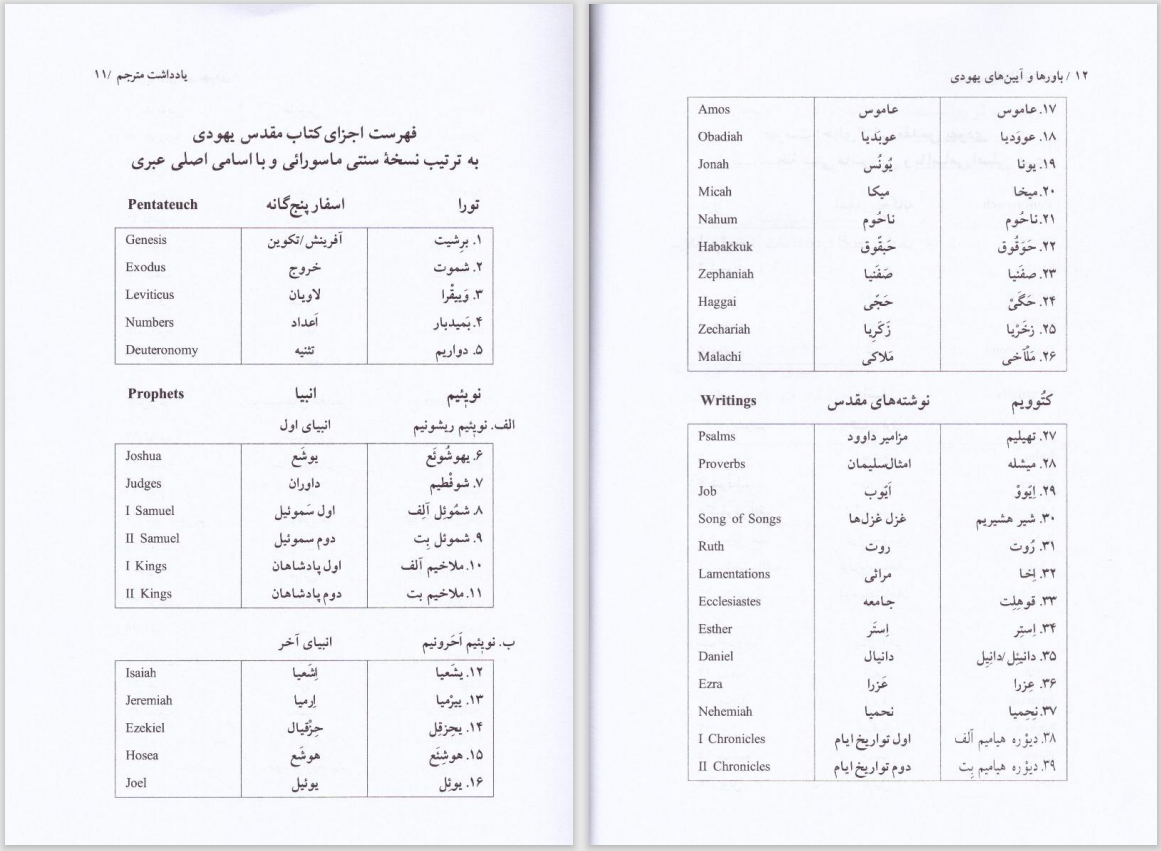 یادداشت مترجم /۱۱
فهرست اجزای کتاب مقدس یهودی
به ترتیب نسخهٔ سنتی ماسورائی و با اسامی اصلی عبری
تورا اسفار پنج‌گانه Pentateuch
۱. بِرِشیت آفرینش/تکوین Genesis
۲. شموت خروج Exodus
۳. وَییقْرا لاویان Leviticus
۴. بَمیدبار اَعداد Numbers
۵. دواریم تثنیه Deuteronomy
نویئیم انبیا Prophets
الف. نویئیم ریشونیم انبیای اول
۶. یهوشُوئَع یوشَع Joshua
۷. شوفْطیم داوران Judges
۸. شمُوئِل آلِف اول سَموئیل I Samuel
۹. شموئل بِت دوم سموئیل II Samuel
۱۰. ملاخیم آلف اول پادشاهان I Kings
۱۱. ملاخیم بت دوم پادشاهان II Kings
ب. نویئیم اَحَرونیم انبیای آخر
۱۲. یشَعیا اِشَعیا Isaiah
۱۳. ییرْمیا اِرمیا Jeremiah
۱۴. یحِزقِل حِزْقیال Ezekiel
۱۵. هوشِنَع هوشَع Hosea
۱۶. یوئِل یوئیل Joel
۱۲ / باورها و آیین‌های یهودی
۱۷. عاموس عاموس Amos
۱۸. عووَدیا عوبَدیا Obadiah
۱۹. یونا یُونُس Jonah
۲۰. میخا میکا Micah
۲۱. ناحُوم ناحُوم Nahum
۲۲. حَوَقُوق حَبقّوق Habakkuk
۲۳. صفَنیا صَفَنیا Zephaniah
۲۴. حَگَیْ حَجّی Haggai
۲۵. زخَرْیا زَکَرِیا Zechariah
۲۶. مَلْآخی مَلاکی Malachi
کتُوویم نوشته‌های مقدس Writings
۲۷. تهیلیم مزامیر داوود Psalms
۲۸. میشله امثال‌سلیمان Proverbs
۲۹. اِیّووْ اَیّوب Job
۳۰. شیر هشیریم غزل غزل‌ها Song of Songs
۳۱. رُوت روت Ruth
۳۲. اِخا مراثی Lamentations
۳۳. قوهِلِت جامعه Ecclesiastes
۳۴. اِستِر اِستَر Esther
۳۵. دانیئِل/دانِیِل دانیال Daniel
۳۶. عِزرا عَزرا Ezra
۳۷. نِحِمیا نحمیا Nehemiah
۳۸. دیوْره هیامیم آلف اول تواریخ ایام I Chronicles
۳۹. دیوْره هیامیم بِت دوم تواریخ ایام II Chronicles